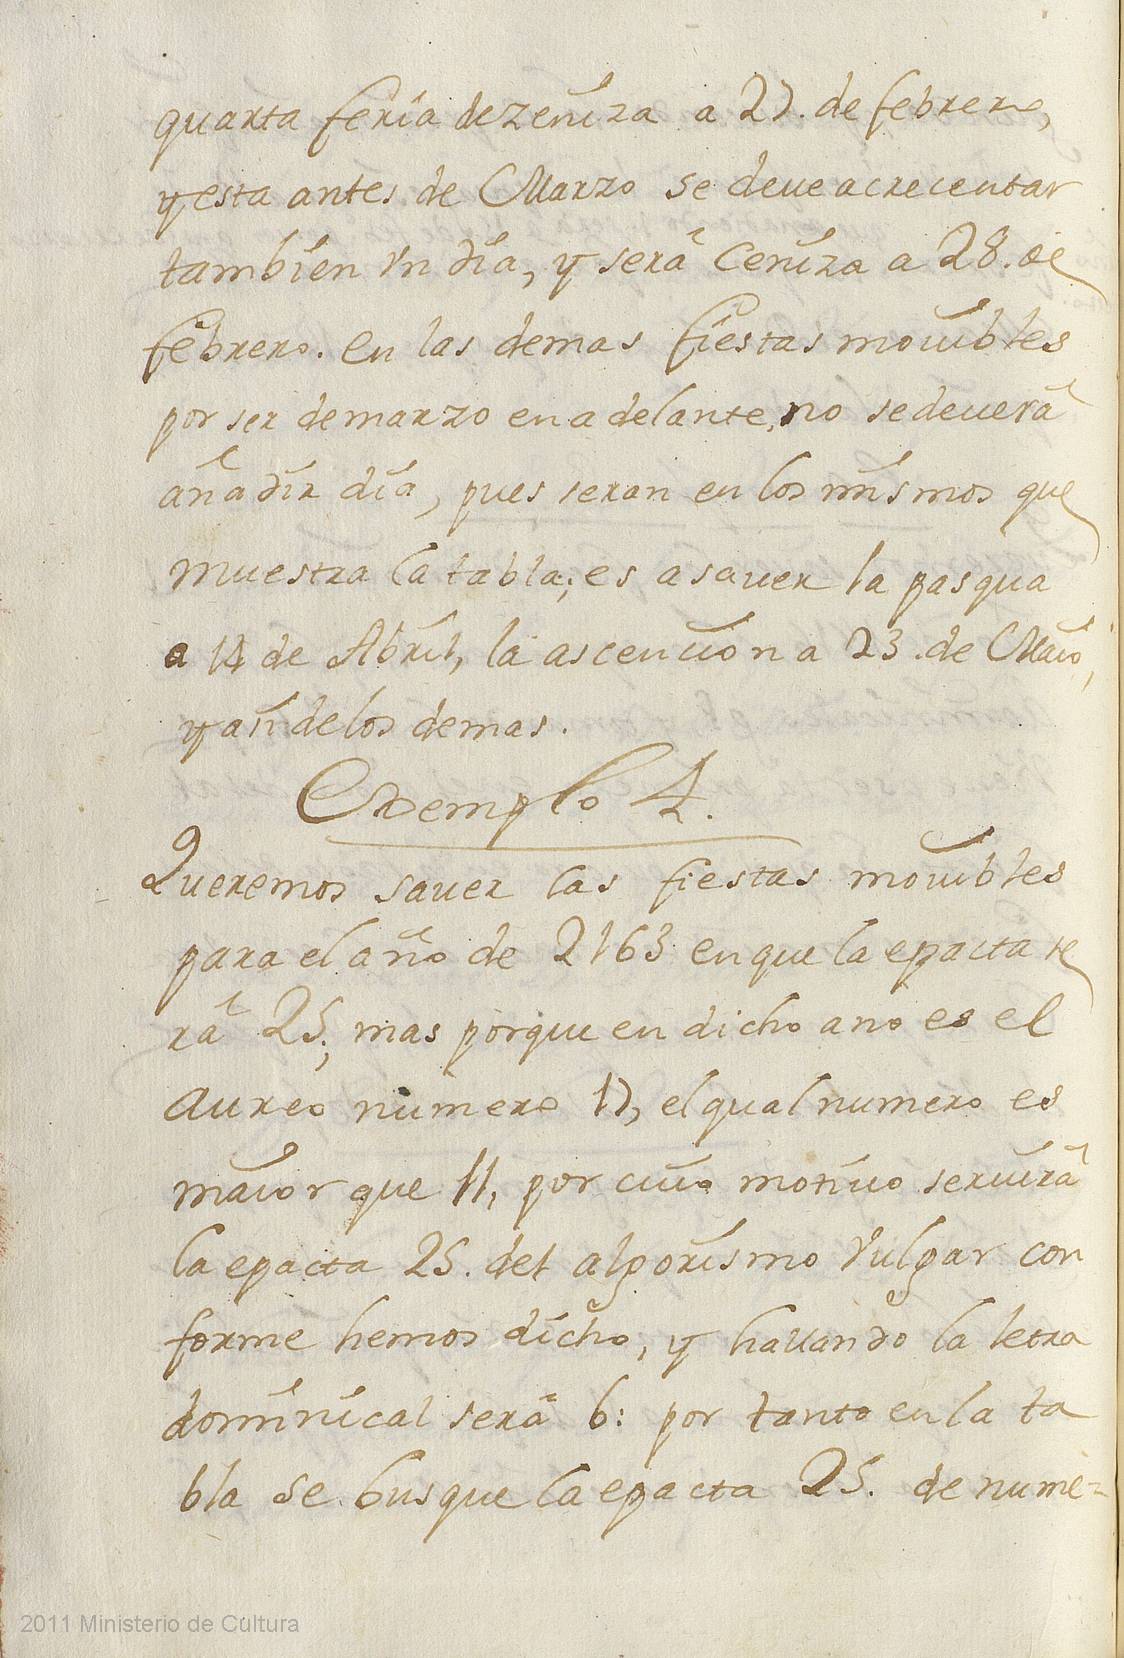 quarta feria de zeniza a 27. de febrero,
y esta antes de Marzo se deue acrecentar
tambien vn dia, y serà Ceniza a 28. de
febrero. en las demas fiestas mouibles
por ser de marzo en adelante, no se deuerà
añadir dia, pues seran en los mismos que
muestra la tabla; es a sauer la pasqua
a 14 de Abril, la ascencion a 23. de Maio,
y asi de los demas.
Exemplo 4.
Queremos sauer las fiestas mouibles
para el año de 2163 en que la epacta se
rà 25; mas porque en dicho ano es el
aureo numero 17, el qual numero es
maior que 11, por cuio motiuo seruirà
la epacta 25. del algorismo vulgar con
forme hemos dicho, y hallando la letra
dominical serà b: por tanto en la ta
bla se busque la epacta 25. de nume=
2011 Ministerio de Cultura